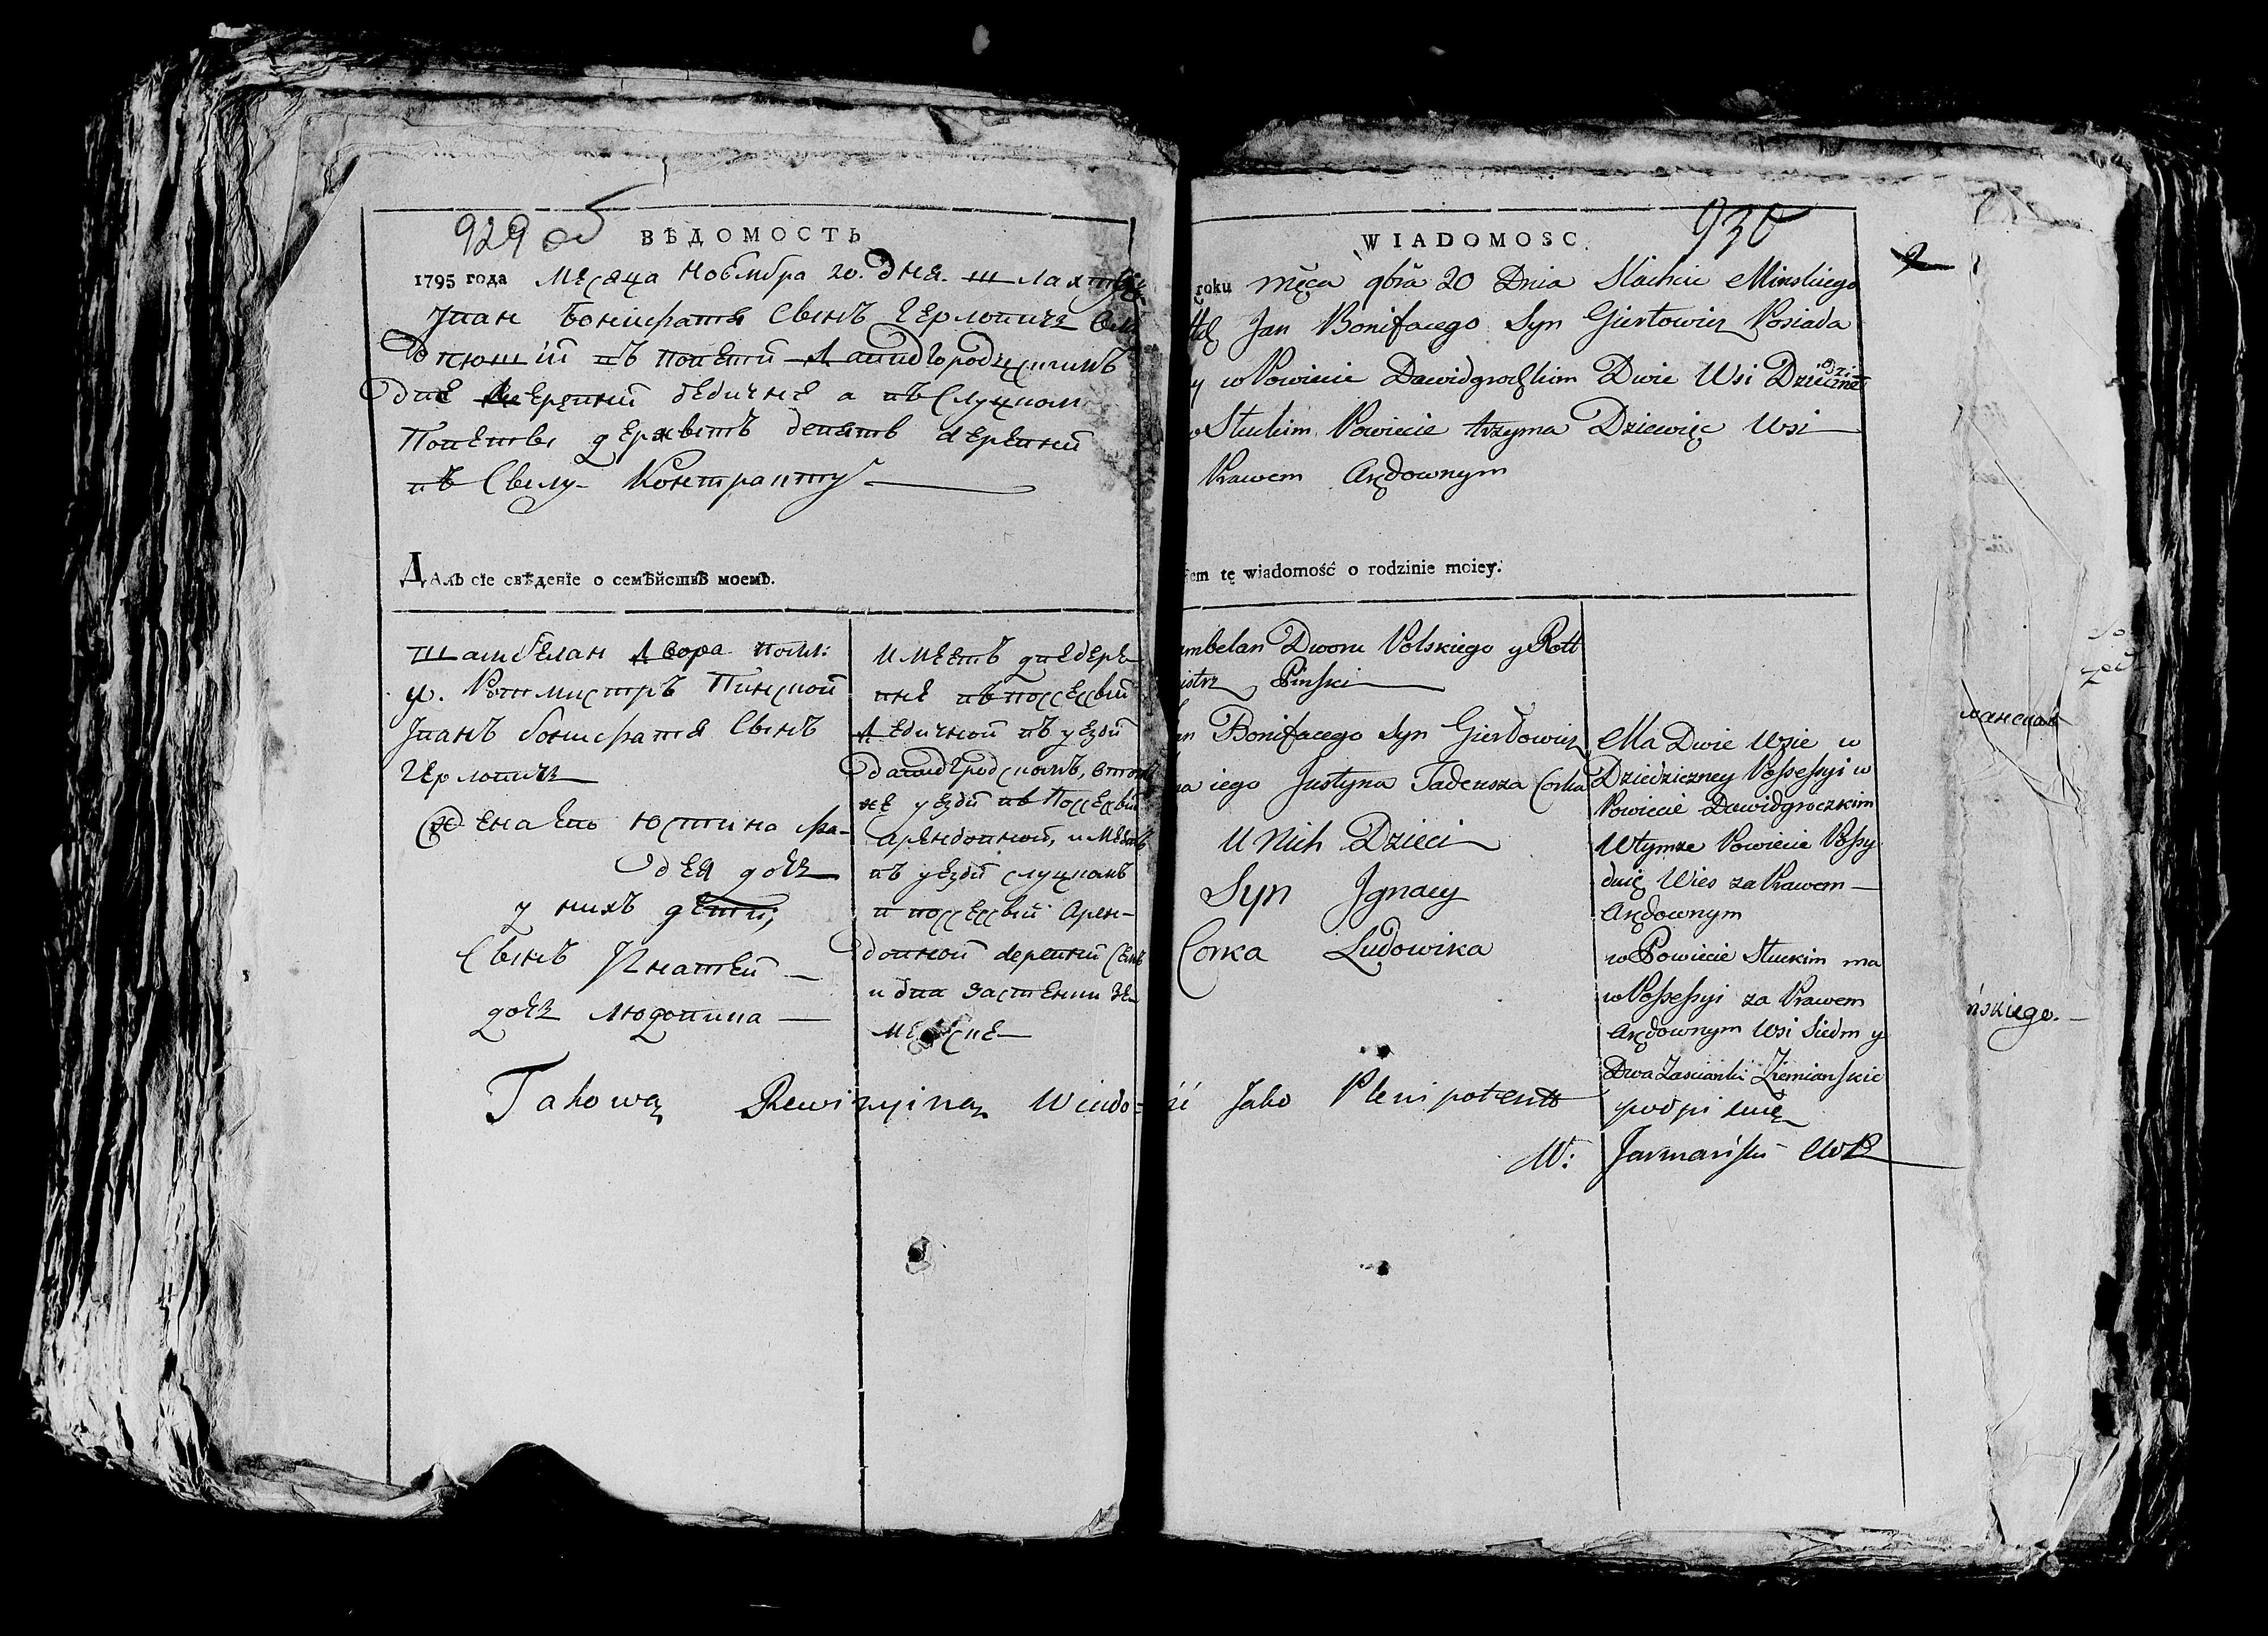 929 об
ВѢДОМОСТЬ
1795 года Месяца Ноембра 20. дня. шляхт
Іван Бонифатія Сынъ Герлович
въ повети Давидгородзскимъ
две деревни дедичне а въ Слуцком
Повете держытъ деветь деревни
въ Силу Контракту
Далъ сіе свѣденіе о семѣйствѣ моемъ.
Шамбелан Двора полск:
у. Ротмистръ Пинской
Іванъ бонифатія Сынъ
Герлович
жена его Юстина фа-
дея дочь
у нихъ дети;
Сынъ Игнатей —
дочь людовика —
имеетъ две дере-
вне въ поссессыи
Дедичной въ уезди
давидградскомъ, втом
же уезди въ Поссессыи
арендовной, имеетъ
въ уезди слуцкомъ
в поссессыи Арен-
довной деревни семь
и два застенки зе-
менске
930
WIADOMOSC.
roku męca 9bra 20 Dnia Slachcic Minskiego
Jan Bonifacego Syn Gierłowicz Posiada
y w Powiecie Dawidgrodskim Dwie Wsi Dziedziczne
w Stuckim Powiecie trzyma Dziewięc Wsi
Prawem Arędownym
łem tę wiadomość o rodzinie moiey.
ambelan Dworu Polskiego y Rott
istrz Pinski
an Bonifacego Syn Gierłowicz
na iego Justyna Tadeusza Corka
U Nich Dzieci
Syn Jgnacy
Corka Ludowika
Ma Dwie Wsie w
Dziedziczney Possessyi w
Powiecie Dawidgroczkim
W tymze Powiecie Possy
duię Wies za Prawem —
Arędownym
w Powiecie Stuckim ma
w Possessyi za Prawem
Arędownym Wsi Siedm y
Dwa Zascianki Ziemianskie
Takową Rewizyiną Wiado-ść Jako Plenipotent podpisuię
W: Jarmański MP
ńskiego. —